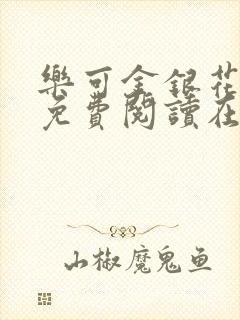 樂可金銀花
免費閱讀在
山椒魔鬼鱼